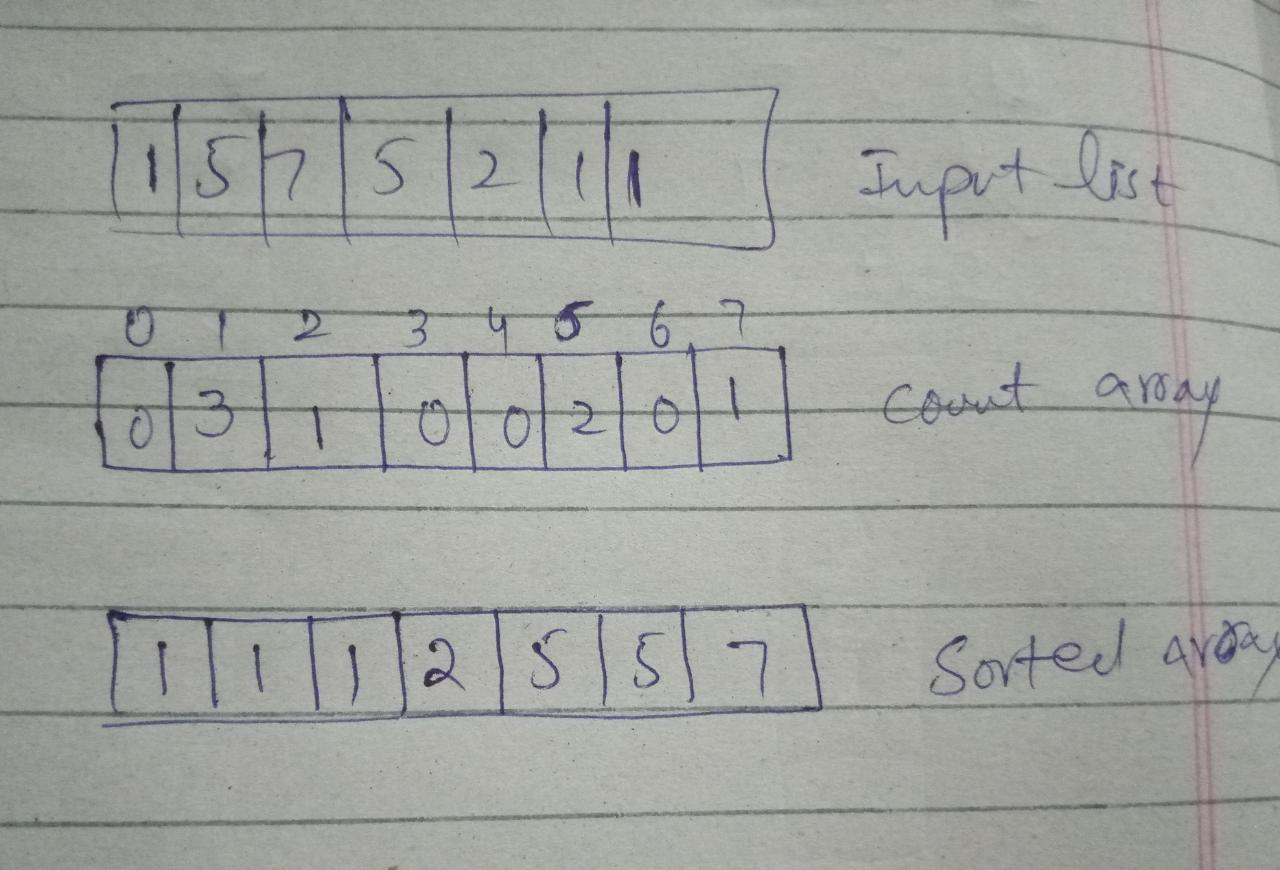 1 5 7 5 2 1 1 Input list
0 1 2 3 4 5 6 7
0 3 1 0 0 2 0 1 Count array
1 1 1 2 5 5 7 Sorted array